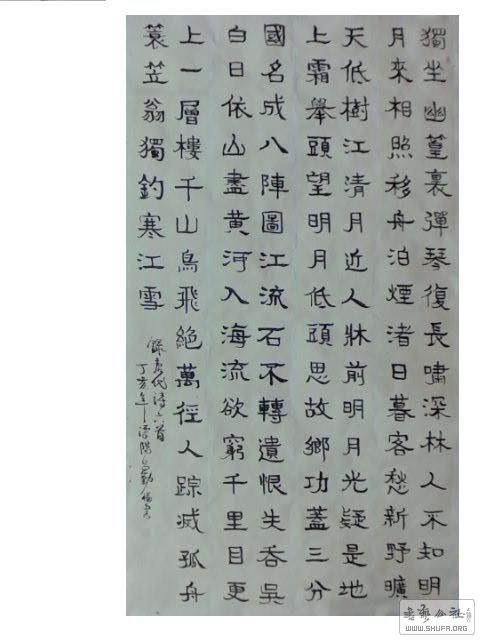 獨坐幽篁裏彈琴復長嘯深林人不知明
月來相照移舟泊煙渚日暮客愁新野曠
天低樹江清月近人牀前明月光疑是地
上霜舉頭望明月低頭思故鄉功蓋三分
國名成八陣圖江流石不轉遺恨失吞吳
白日依山盡黃河入海流欲窮千里目更
上一層樓千山鳥飛絕萬徑人踪滅孤舟
蓑笠翁獨釣寒江雪
錄唐代詩六首
丁亥年
書藝公社
WWW.SHUFA.ORG